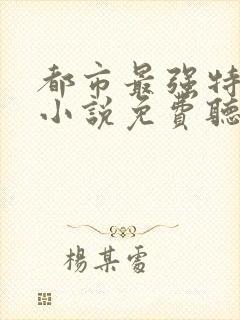 都市最强特
小說免費聽
楊某雷